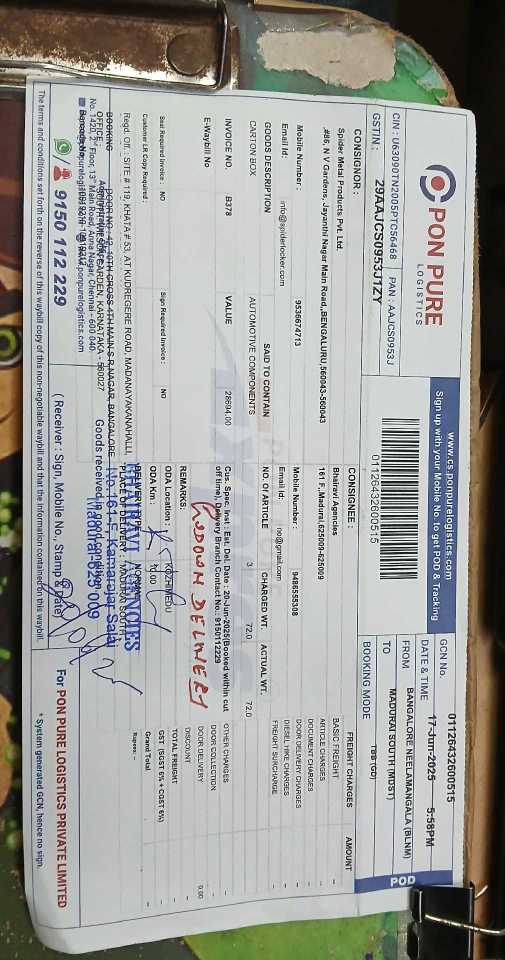 PON PURE
LOGISTICS
CIN : U63090TN2005PTC56468 PAN : AAJCS0953J
GSTIN : 29AAJCS0953J1ZY
www.cs.ponpurelogistics.com
Sign up with your Mobile No. to get POD & Tracking
01126432600515
GCN No. 01126432600515
DATE & TIME 17-Jun-2025 5:58PM
FROM BANGALORE NEELAMANGALA (BLNM)
TO MADURAI SOUTH (MDST)
BOOKING MODE TBB (GO)
POD
CONSIGNOR :
Spider Metal Products Pvt. Ltd.
,#86, N V Gardens, Jayanthi Nagar Main Road,,BENGALURU,560043-560043
Mobile Number : 9538674713
Email Id: info@spiderlocker.com
CONSIGNEE :
Bhairavi Agencies
161 F,,Madurai,625009-625009
Mobile Number: 9486555308
Email Id: no@gmail.com
GOODS DESCRIPTION SAID TO CONTAIN NO. OF ARTICLE CHARGED WT. ACTUAL WT.
CARTON BOX AUTOMOTIVE COMPONENTS 3 72.0 72.0
INVOICE NO. B378 VALUE 28604.00
E-Waybill No
Cus. Spec. Inst : Est. Del. Date : 20-Jun-2025(Booked within cut
off time), Delivery Branch Contact No.: 9150112229
GODOWN DELIVERY
REMARKS:
Seal Required Invoice : NO Sign Required Invoice : NO
Customer LR Copy Required :
ODA Location : KOZHIMEDU
ODA Km :
FREIGHT CHARGES AMOUNT
BASIC FREIGHT
ARTICLE CHARGES
DOCUMENT CHARGES
DOOR DELIVERY CHARGES
DIESEL HIKE CHARGES
FREIGHT SURCHARGE
OTHER CHARGES
DOOR COLLECTION
DOOR DELIVERY 0.00
DISCOUNT
TOTAL FREIGHT
GST (SGST 6% + CGST 6%)
Grand Total
Rupees: --
Regd. Off. : SITE # 119, KHATA # 53, AT KUDREGERE ROAD, MADANAYAKANAHALLI,
BOOKING OFFICE : DOOR NO-42, 10TH CROSS 4TH MAIN S R NAGAR, BANGALORE
KARNATAKA - 560027
No. 1420, 2nd Floor, 13th Main Road, Anna Nagar, Chennai - 600 040.
9150 112 229
BHAIRAVI AGENCIES
No.161-F, Kamarajar Salai
Madurai-625 009
PLACE OF DELIVERY : MADURAI SOUTH
Goods received in good condition
(Receiver : Sign, Mobile No., Stamp & Date)
For PON PURE LOGISTICS PRIVATE LIMITED
The terms and conditions set forth on the reverse of this waybill copy of this non-negotiable waybill and that the information contained on this waybill
* System generated GCN, hence no sign.